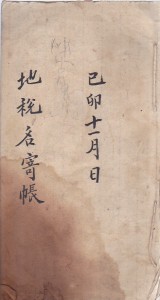 己卯十一月日
地稅名寄帳